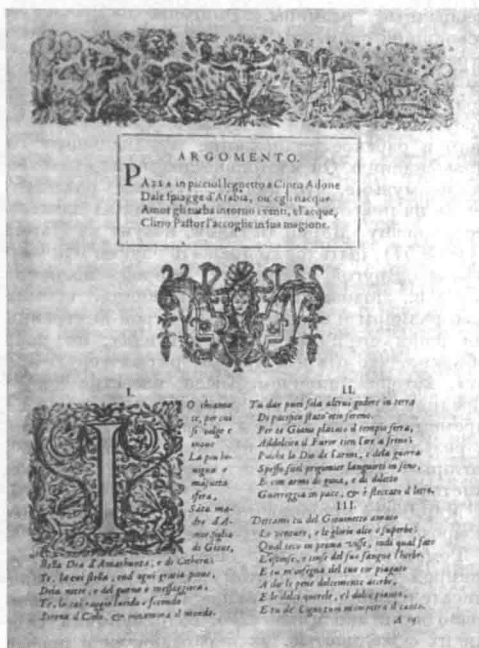 ARGOMENTO.
PASSA in picciol legnetto a Cipro Adone
Dale spiagge d'Arabia, ou' egli nacque.
Amor gli turba intorno i venti, el'acque,
Clitio Pastor l'accoglie in sua magione.
I.
IO chiamo
te, per cui
si volge e
move
La più be-
nigna e
mansueta
sfera,
Santa ma-
dre d'A-
mor, figlia
di Giove,
Bella Dea d'Amathunta, e di Cithera;
Te, la cui stella, ond' ogni gratia piove,
Dela notte, e del giorno e messaggiera;
Te, lo cui raggio lucido e fecondo
Serena il Cielo, & innamora il mondo.
II.
Tu dar puoi sola altrui godere in terra
Di pacifico stato otio sereno.
Per te Giano placato il tempio serra,
Addolcito il Furor tien l'ire a freno;
Poiche lo Dio de l'armi, e dela guerra
Spesso suol prigionier languirti in seno,
E con armi di gioia, e di diletto
Guerreggia in pace, & è steccato il letto.
III.
Dettami tu del Giovinetto amato
Le venture, e le glorie alte e superbe;
Qual teco in prima visse, indi qual fato
L'estinse, e tinse del suo sangue l'herbe.
E tu m'insegna del tuo cor piagato
A dir le pene dolcemente acerbe,
E le dolci querele, e'l dolce pianto;
E tu de' Cigni tuoi m'impetra il canto.
A